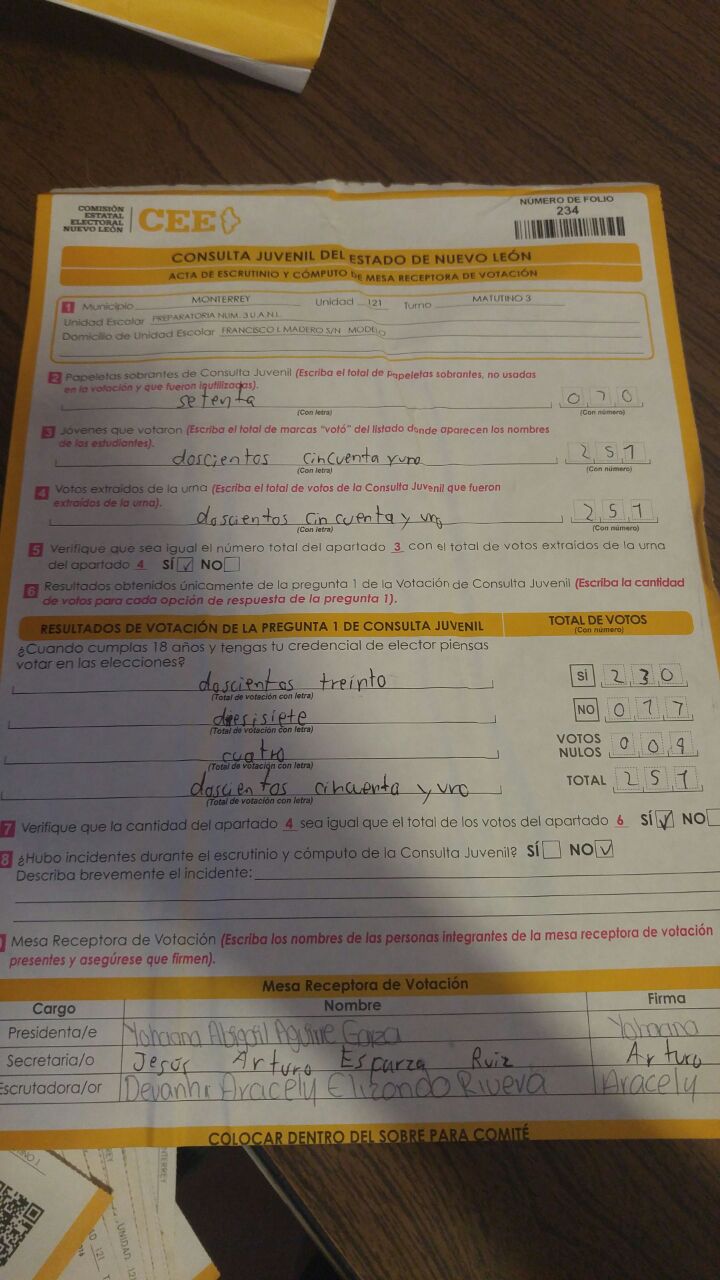 COMISIÓN
ESTATAL
ELECTORAL
NUEVO LEÓN
CEE
NÚMERO DE FOLIO
234
CONSULTA JUVENIL DEL ESTADO DE NUEVO LEÓN
ACTA DE ESCRUTINIO Y CÓMPUTO DE MESA RECEPTORA DE VOTACIÓN
1 Municipio MONTERREY Unidad 121 Turno MATUTINO 3
Unidad Escolar PREPARATORIA NUM. 3 U.A.N.L.
Domicilio de Unidad Escolar FRANCISCO I. MADERO S/N MODELO
2 Papeletas sobrantes de Consulta Juvenil (Escriba el total de papeletas sobrantes, no usadas
en la votación y que fueron inutilizadas).
setenta 070
(Con letra) (Con número)
3 Jóvenes que votaron (Escriba el total de marcas "votó" del listado donde aparecen los nombres
de los estudiantes).
doscientos cincuenta y uno 251
(Con letra) (Con número)
4 Votos extraídos de la urna (Escriba el total de votos de la Consulta Juvenil que fueron
extraídos de la urna).
doscientos cincuenta y uno 251
(Con letra) (Con número)
5 Verifique que sea igual el número total del apartado 3 con el total de votos extraídos de la urna
del apartado 4 SÍ ✓ NO
6 Resultados obtenidos únicamente de la pregunta 1 de la Votación de Consulta Juvenil (Escriba la cantidad
de votos para cada opción de respuesta de la pregunta 1).
RESULTADOS DE VOTACIÓN DE LA PREGUNTA 1 DE CONSULTA JUVENIL TOTAL DE VOTOS
(Con número)
¿Cuando cumplas 18 años y tengas tu credencial de elector piensas
votar en las elecciones?
doscientos treinto SÍ 230
(Total de votación con letra)
diesisiete NO 017
(Total de votación con letra)
cuatro VOTOS NULOS 004
(Total de votación con letra)
doscientos cincuenta y uno TOTAL 251
(Total de votación con letra)
7 Verifique que la cantidad del apartado 4 sea igual que el total de los votos del apartado 6 SÍ ✓ NO
8 ¿Hubo incidentes durante el escrutinio y cómputo de la Consulta Juvenil? SÍ NO ✓
Describa brevemente el incidente:
Mesa Receptora de Votación (Escriba los nombres de las personas integrantes de la mesa receptora de votación
presentes y asegúrese que firmen).
Mesa Receptora de Votación
Cargo Nombre Firma
Presidenta/e Yohaana Abigail Aguirre Garza Yohaana
Secretaria/o Jesús Arturo Esparza Ruiz Arturo
Escrutadora/or Devanhi Aracely Elizondo Rivera Aracely
COLOCAR DENTRO DEL SOBRE PARA COMITÉ
UNIDAD 121